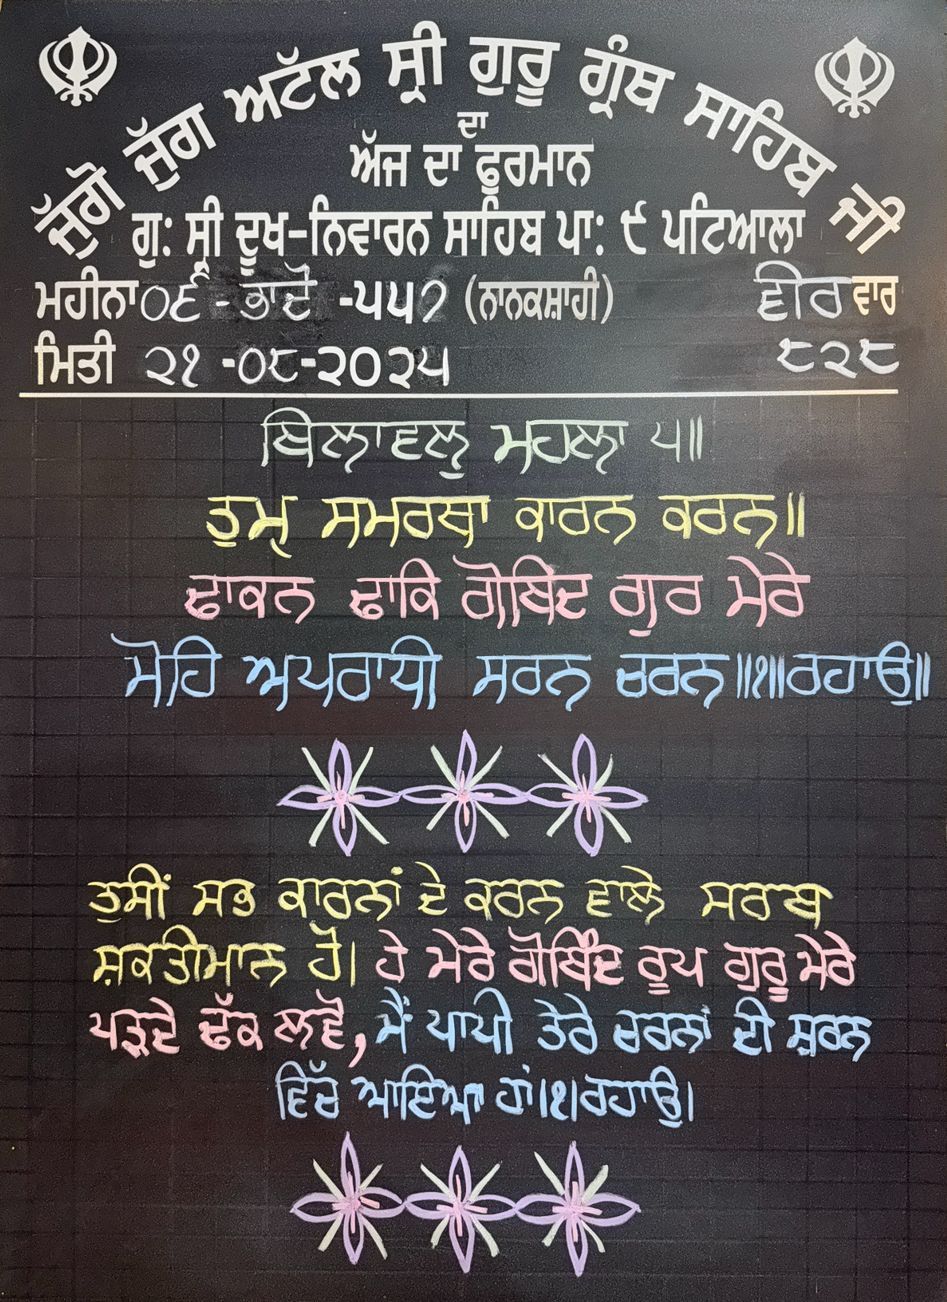 ਜੁੱਗੋ ਜੁੱਗ ਅਟੱਲ ਸ੍ਰੀ ਗੁਰੂ ਗ੍ਰੰਥ ਸਾਹਿਬ ਜੀ
ਦਾ
ਅੱਜ ਦਾ ਫੁਰਮਾਨ
ਗੁ: ਸ੍ਰੀ ਦੂਖ-ਨਿਵਾਰਨ ਸਾਹਿਬ ਪਾ: ੯ ਪਟਿਆਲਾ
ਮਹੀਨਾ ੦੬ - ਭਾਦੋਂ -੫੫੭ (ਨਾਨਕਸ਼ਾਹੀ) ਵੀਰ ਵਾਰ
ਮਿਤੀ ੨੧ -੦੮-੨੦੨੫ ੮੨੮
ਬਿਲਾਵਲੁ ਮਹਲਾ ੫॥
ਤੁਮ੍ ਸਮਰਥਾ ਕਾਰਨ ਕਰਨ॥
ਢਾਕਨ ਢਾਕਿ ਗੋਬਿਦ ਗੁਰ ਮੇਰੇ
ਮੋਹਿ ਅਪਰਾਧੀ ਸਰਨ ਚਰਨ॥੧॥ਰਹਾਉ॥
ਤੁਸੀਂ ਸਭ ਕਾਰਨਾਂ ਦੇ ਕਰਨ ਵਾਲੇ ਸਰਬ
ਸ਼ਕਤੀਮਾਨ ਹੋ। ਹੇ ਮੇਰੇ ਗੋਬਿੰਦ ਰੂਪ ਗੁਰੂ ਮੇਰੇ
ਪੜਦੇ ਢੱਕ ਲਵੋ, ਮੈਂ ਪਾਪੀ ਤੇਰੇ ਚਰਨਾਂ ਦੀ ਸ਼ਰਨ
ਵਿੱਚ ਆਇਆ ਹਾਂ।੧।ਰਹਾਉ।